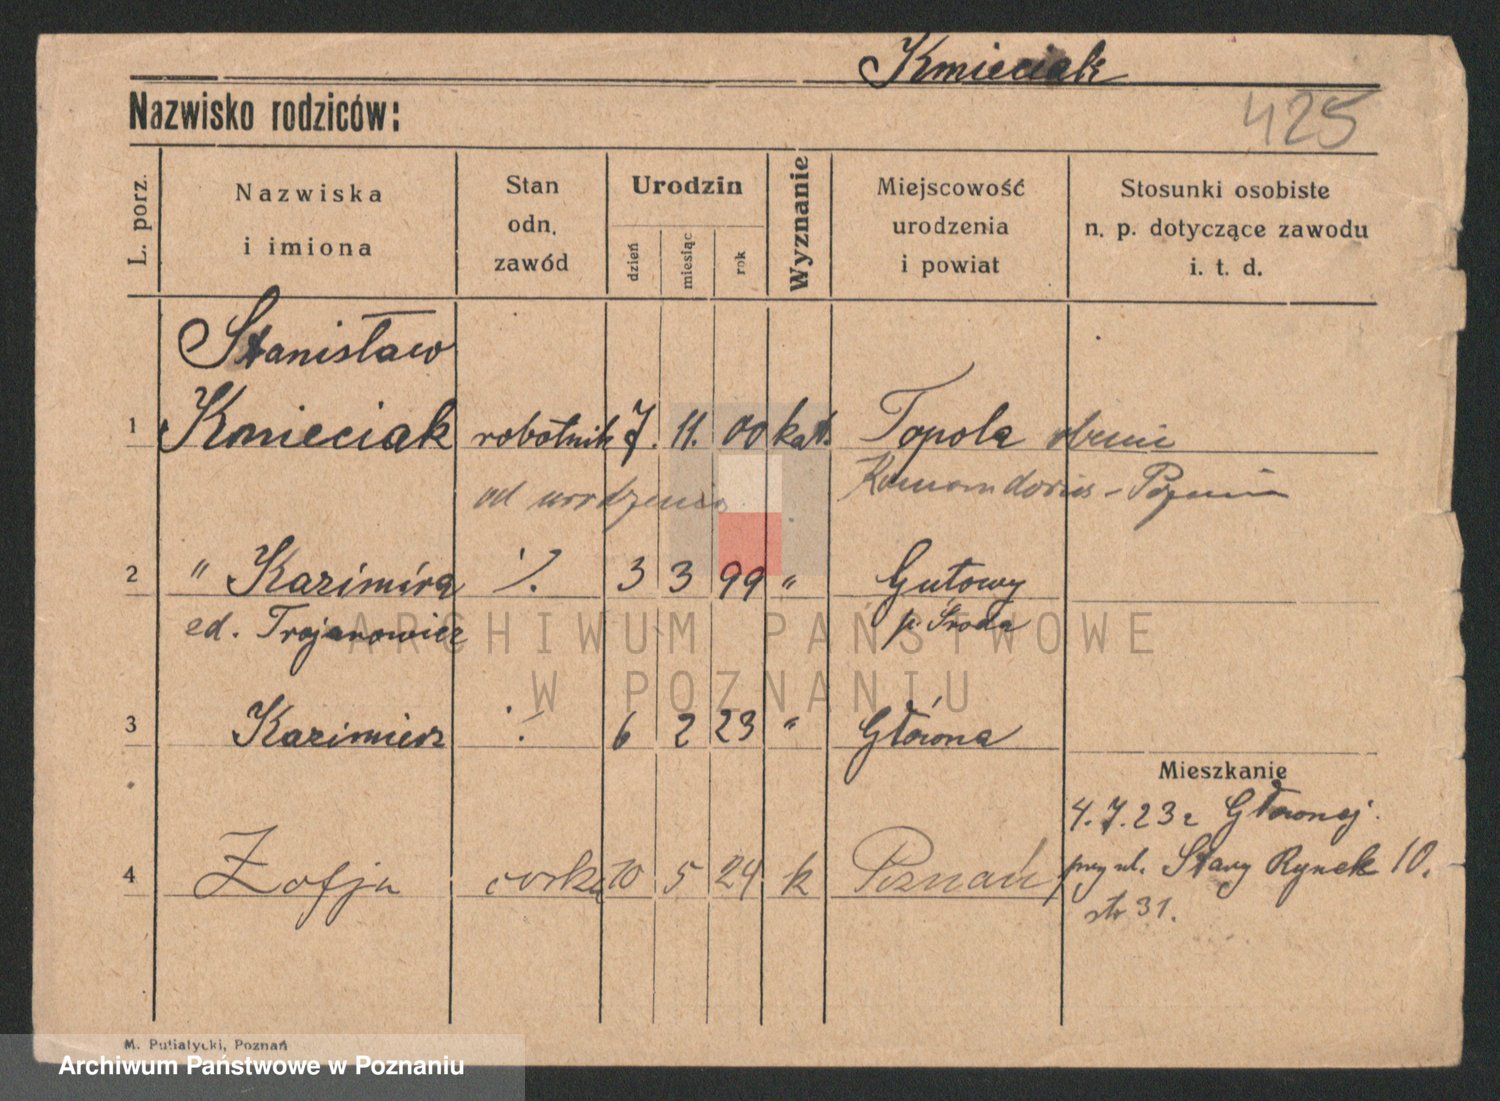 Kmieciak
Nazwisko rodziców:
425
L. porz.
Nazwiska
i imiona
Stan
odn.
zawód
Urodzin
dzień
miesiąc
rok
Wyznanie
Miejscowość
urodzenia
i powiat
Stosunki osobiste
n. p. dotyczące zawodu
i. t. d.
Stanisław
1 Kmieciak robotnik 7. 11. 00 kat. Topola
od urodzenia
2 " Kazimira ./. 3 3 99 " Gutowy
ed. Trojanowicz p. Środa
3 Kazimierz ./. 6 2 23 " Główna
Mieszkanie
4. 7. 23 z Głównej.
4 Zofja córka 10 5 24 k Poznań
przy ul. Stary Rynek 10.
str 31.
ARCHIWUM PAŃSTWOWE
W POZNANIU
M. Putiatycki, Poznań
Archiwum Państwowe w Poznaniu